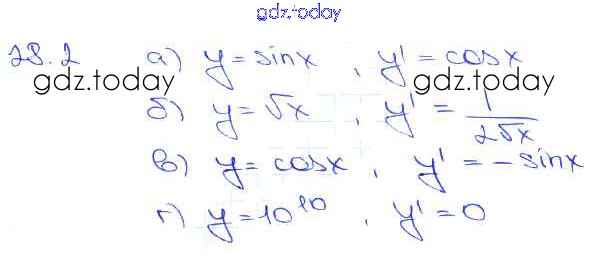 gdz.today
28.2 а) y = sinx , y' = cosx
gdz.today gdz.today
б) y = √x , y' = 1/(2√x)
в) y = cosx , y' = -sinx
г) y = 10¹⁰ , y' = 0